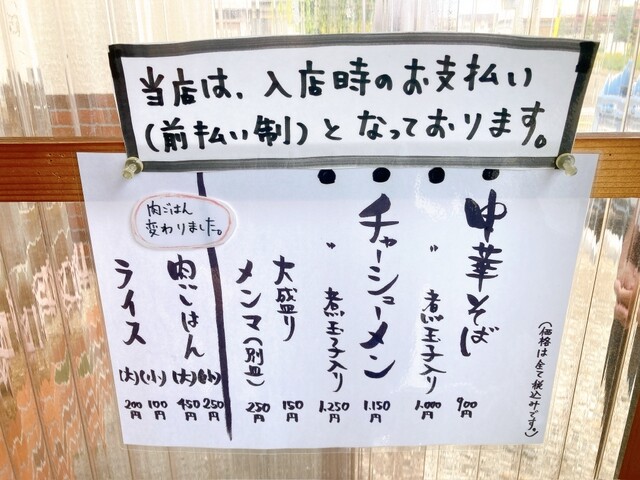 当店は、入店時のお支払い
(前払い制)となっております。
(価格は全て税込みです。)
中華そば 900円
〃 煮玉子入り 1.000円
チャーシューメン 1.150円
〃 煮玉子入り 1.250円
大盛り 150円
メンマ(別皿) 250円
肉ごはん
変わりました。
肉ごはん (小) 250円
(大) 450円
ライス (小) 100円
(大) 200円